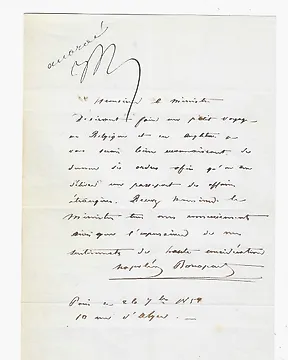 accordé
Monsieur le Ministre
Désirant faire un petit voyage
en Belgique et en Angleterre
vous serai bien reconnaissant de
donner des ordres afin qu'on me
délivre un passeport des affaires
étrangères. Recevez Monsieur le
Ministre tous mes remerciements
ainsi que l'expression de mes
sentiments de haute considération
Napoléon Bonaparte
Paris ce 26 7bre 1859
10 rue d'Alger. —